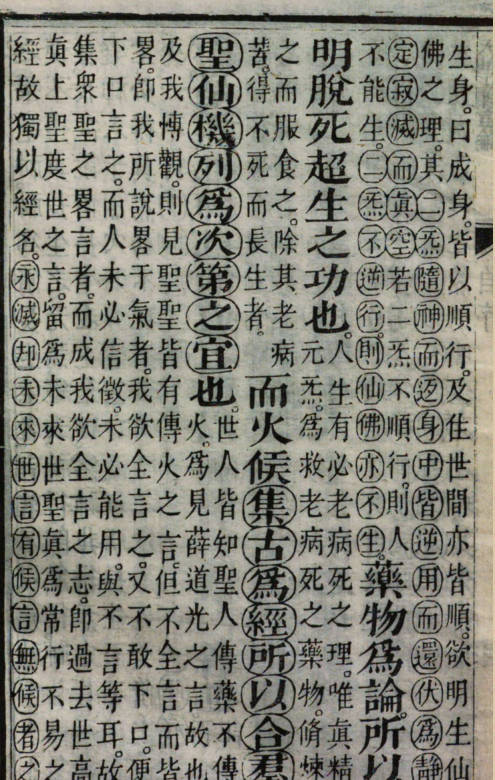 生身。曰成身。皆以順行。及住世間亦皆順。欲明生仙
佛之理。其二炁隨神而返身中皆逆用而還伏爲靜
定寂滅而眞空若二炁不順行。則人
不能生。二炁不逆行。則仙佛亦不生。
藥物爲論所以
明脫死超生之功也。
人生有必老病死之理。唯眞精
元炁。爲救老病死之藥物脩煉
之而服食之。除其老病
苦。得不死而長生者。
而火候集古爲經所以合羣
聖仙機列爲次第之宜也。
世人皆知聖人傳藥不傳
火。爲見薛道光之言故也
及我愽觀。則見聖聖皆有傳火之言。但不全言而皆
畧。卽我所說畧于氣者。我欲全言之。又不敢下口。便
下口言之。而人未必信徵。未必能用。與不言等耳。故
集衆聖之畧言者。而成我欲全言之志卽過去世高
眞上聖度世之言。留爲未來世聖眞爲常行不易之
經故獨以經名。永滅却未來世言有候言無候者之